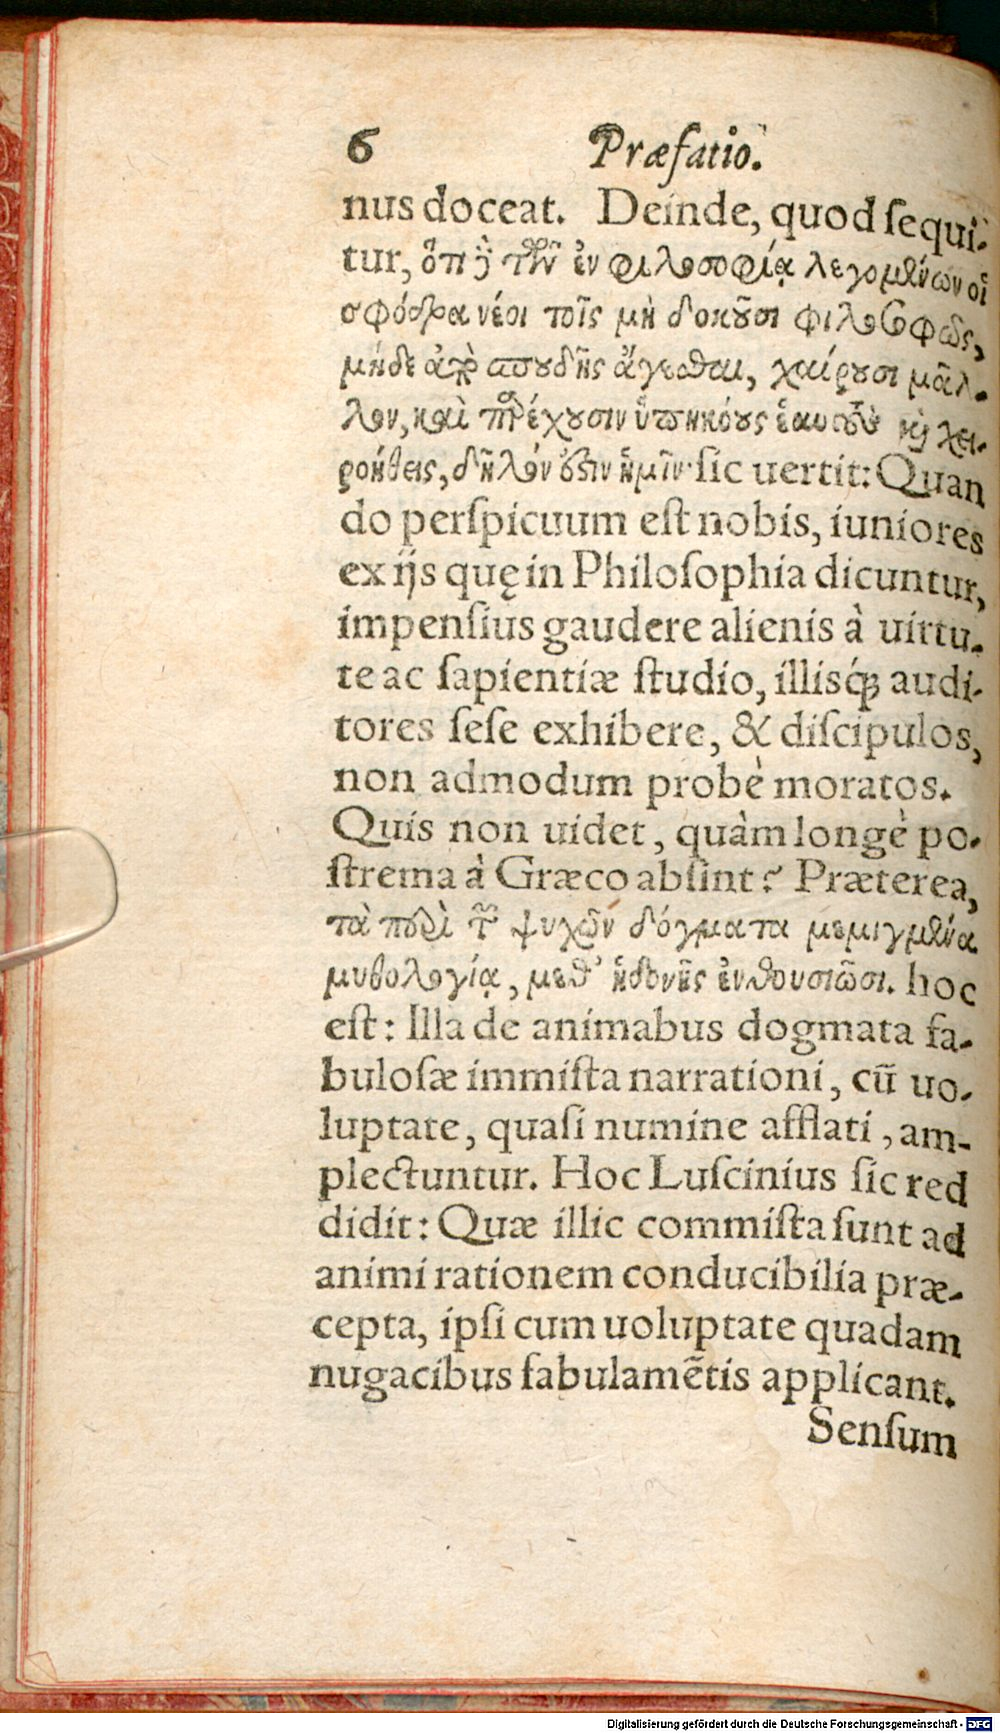 6 Præfatio.
nus doceat. Deinde, quod ſequi-
tur, ὅτι ἢ τῶν ἐν φιλοσοφίᾳ λεγομένων οἱ
σφόδρα νέοι τοῖς μὴ δοκοῦσι φιλοσόφως,
μηδὲ ἀπὸ σπουδῆς λέγεσθαι, χαίρουσι μᾶλ-
λον, καὶ παρέχουσιν ὑπηκόους ἑαυτοὺς καὶ χει-
ροήθεις, δῆλόν ἐστιν ἡμῖν· ſic uertit: Quan
do perſpicuum eſt nobis, iuniores
ex ijs quę in Philoſophia dicuntur,
impenſius gaudere alienis à uirtu-
te ac ſapientiæ ſtudio, illisq́ʒ audi-
tores ſeſe exhibere, & diſcipulos,
non admodum probè moratos.
Quis non uidet, quàm longè po-
ſtrema à Græco abſint? Præterea,
τὰ περὶ τῶν ψυχῶν δόγματα μεμιγμένα
μυθολογίᾳ, μεθ’ ἡδονῆς ἐνθουσιῶσι. hoc
eſt: Illa de animabus dogmata fa-
buloſæ immiſta narrationi, cū uo-
luptate, quaſi numine afflati, am-
plectuntur. Hoc Luſcinius ſic red
didit: Quæ illic commiſta ſunt ad
animi rationem conducibilia præ-
cepta, ipſi cum uoluptate quadam
nugacibus fabulamētis applicant.
Senſum
Digitalisierung gefördert durch die Deutsche Forschungsgemeinschaft - DFG